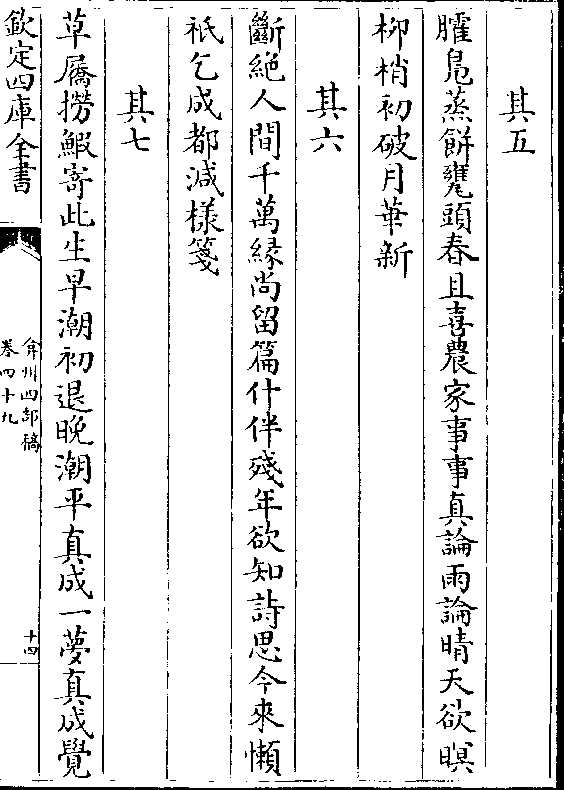 其五
臛鳧蒸餅甕頭春且喜農家事事真論雨論晴天欲暝
柳梢初破月華新
其六
斷絶人間千萬縁尚留篇什伴殘年欲知詩思今來懶
祇乞成都減様箋
其七
草屩撈鰕寄此生早潮初退晩潮平真成一夢真成覺
欽定四庫全書
弇州四部稿
卷四十九
十四